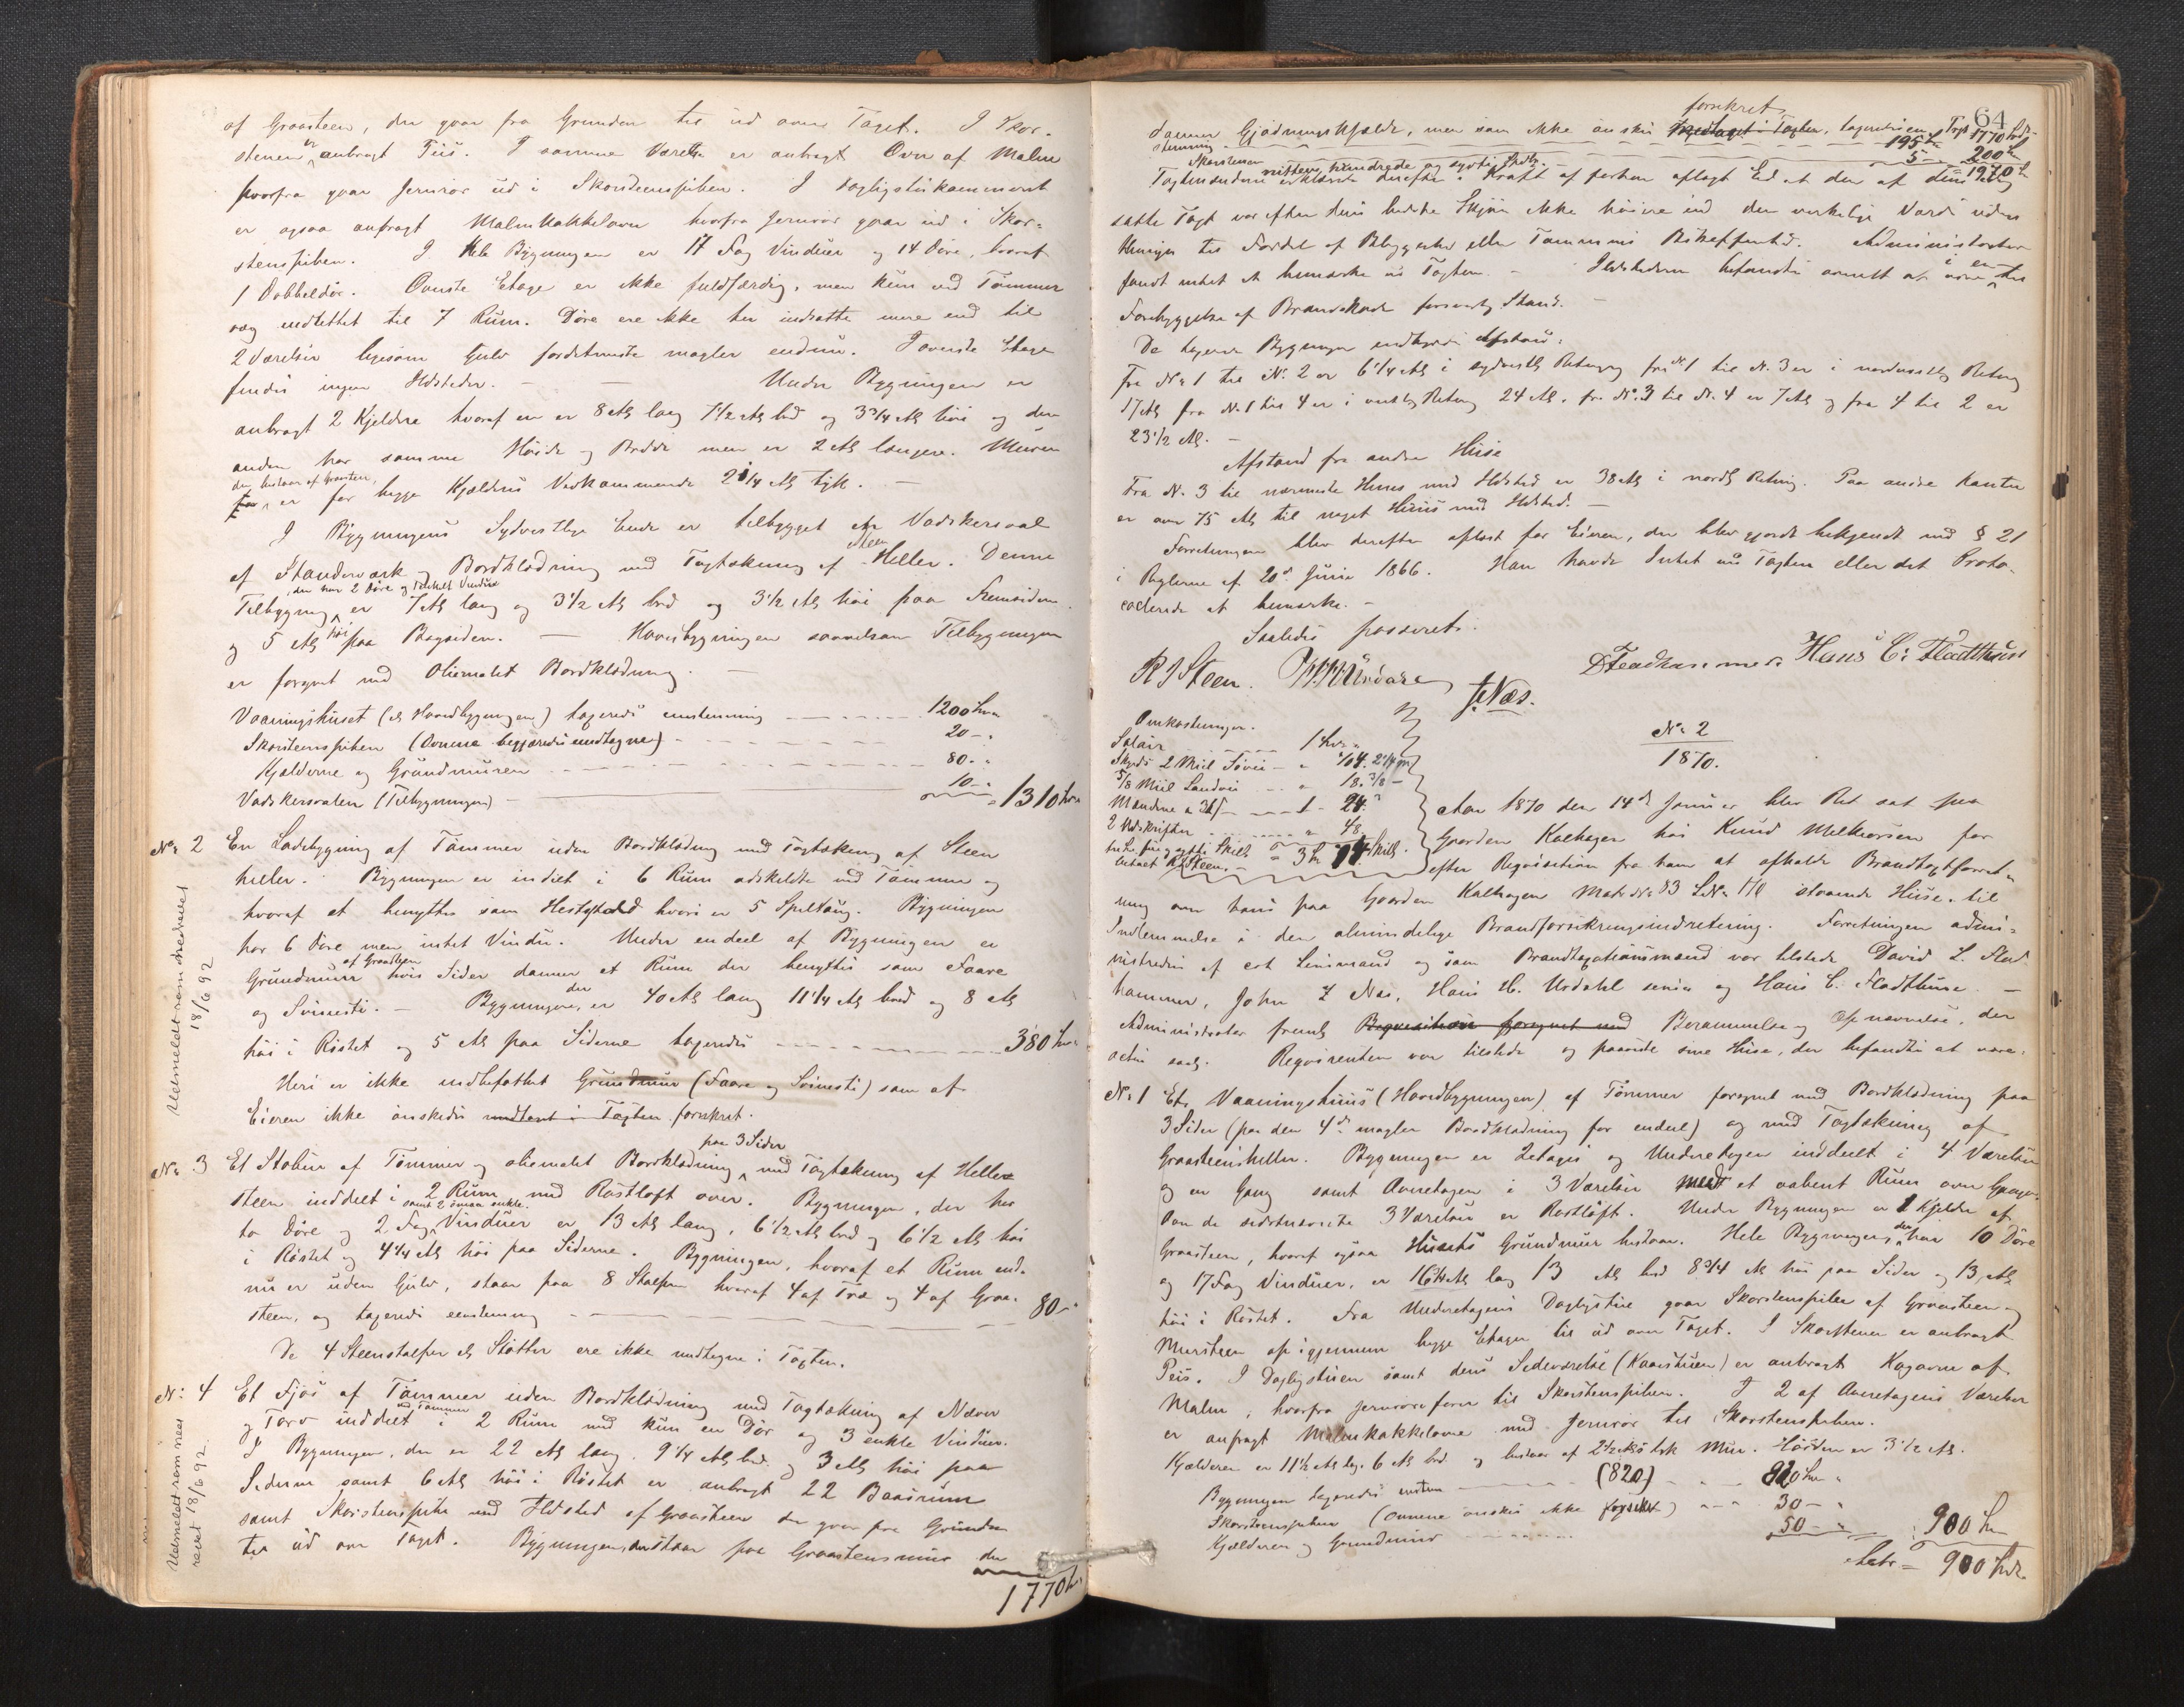 af Graasteen, der gaar fra Grunden til ud over Taget. I Skor-
stenen er anbragt Piis. I samme Værelse er anbragt Ovn af Malm
hvorfra gaar Jernrør ud i Skorsteenspiben. I Dagligstukammeret
er ogsaa anbragt Malmkakkelovn hvorfra Jernrør gaar ud i Skor-
stenspiben. I Hele Bygningen er 17 Fag Vinduer og 14 Døre, hvoraf
1 Dobbeldør. Øverste Etage er ikke fuldfærdig, men kun ved Tømmer
væg inddeelt til 7 Rum. Døre ere ikke her indsatte mere end til
2 Værelser ligesom Gulv fordetmeste mangler endnu. I øverste Etage
findes ingen Ildsteder. — Under Bygningen er
anbragt 2 Kjeldere hvoraf en er 8 Al lang 7 1/2 Al bred og 3 3/4 Al høi og den
anden har samme Høide og Bredde men er 2 Al længere. Muren
der bestaar af Graasteen,
er for begge Kjeldres Vedkommende 2 1/4 Al tyk. —
I Bygningens Sydvestlige Ende er tilbygget et Vadskersval
af Standerværk og Bordklædning med Tagtækning af Steen Heller. Denne
der har 2 Døre og enkelt Vindue
Tilbygning er 7 Al lang og 3 1/2 Al bred og 3 1/2 Al høi paa Fremsiden
og 5 Al høi paa Bagsiden. — Hovedbygningen saavelsom Tilbygningen
er forsynet med Oliemalet Bordklædning. —
Vaaningshuset (ɔ: Hovedbygningen) taxeredes enstemmig 1200 Spd
Skorsteenspiben (Ovnene begjæredes undtagne) 20 - "
Kjelderne og Grundmuren 80 - "
Vadskersvalen (Tilbygningen) 10 - " = 1310 Spd
No 2 En Ladebygning af Tømmer uden Bordklædning med Tagtækning af Steen
heller. Bygningen er inddelt i 6 Rum adskildte med Tømmer og
hvoraf et benyttes som Hestestald hvori er 5 Spiltoug. Bygningen
har 6 Døre men intet Vindu. Under endeel af Bygningen er
af Graasteen
Grundmur hvis Sider danner et Rum der benyttes som Faare
og Svinesti. — Bygningen, der er 40 Al lang 11 1/4 Al bred og 8 Al
høi i Røstet og 5 Al paa Siderne taxeredes 380 Spd
Heri er ikke indbefattet Grundmur (Faare og Svinesti) som af
Eieren ikke ønskedes medtaget i Taxten forsikret.
Udmeldt som nedrevet
18/6 92
No 3 Et Stabur af Tømmer og oliemalet Bordklædning paa 3 Sider med Tagtækning af Helle
steen inddelt i 2 Rum med Røstloft over. Bygningen, der har
samt 2 smaa enkle
to Døre og 2 Fag Vinduer er 13 Al lang, 6 1/2 Al bred og 6 1/2 Al høi
i Røstet og 4 1/4 Al høi paa Siderne. Bygningen, hvoraf et Rum end-
nu er uden Gulv, staar paa 8 Stolper hvoraf 4 af Træ og 4 af Graa-
steen, og taxeredes eenstemmig 80 - "
De 4 Steenstolper ɔ: Støtter ere ikke medtagne i Taxten.
No 4 Et Fjøs af Tømmer uden Bordklædning med Tagtækning af Næver
og Torv inddelt med Tømmer i 2 Rum med kun en Dør og 3 enkle Vinduer.
I Bygningen, der er 22 Al lang 9 1/4 Al bred og 3 Al høi paa
Siderne samt 6 Al høi i Røstet er anbragt 22 Baasrum
samt Skorsteenspibe med Ildsted af Graasteen der gaar fra Grunden
til ud over Taget. Bygningen, der staar paa Graasteensmur der
1770
Udmeldt som ned
revet 18/6 92.
64
danner Gjødningskjelder, men som ikke ønskes medtaget i Taxten, forsikret taxeredes een- Trspt 1770 Spd
stemmig 195 Spd
Skorstenen 5 - 200 Spd
nitten hundrede og sytti Spd. 1970
Taxtmændene erklærede derefter i Kraft af forhen aflagt Ed at den af dem
satte Taxt var efter deres bedste Skjøn ikke høiere end den virkelige Værdi uden
Hensyn til Fordel af Beliggenhed eller Tømmers Bekostelighed. Administrator
fandt intet at bemærke ved Taxten. — Ildstederne befandtes ovenalt at være i en til
Forebyggelse af Brandskade forsvarlig Stand. —
De taxerede Bygninger indbyrdes Afstand:
Fra No 1 til No. 2 er 6 1/4 Al i sydvestlig Retning fra No 1 til No. 3 er i nordvestlig Retning
17 Al fra No. 1 til 4 er i vestlig Retning 24 Al, fra No. 3 til No. 4 er 7 Al og fra 4 til 2 er
23 1/2 Al. —
Afstand fra andre Huse
Fra No. 3 til nærmeste Huus med Ildsted er 38 Al i nordl Retning. Paa andre Kanter
er over 75 Al til noget Huus med Ildsted. —
Forretningen blev derefter oplæst for Eieren, der blev gjordt bekjendt med § 21
i Reglerne af 20de Juni 1866. Han havde Intet ved Taxten eller det Proto-
collerede at bemærke. —
Saaledes passeret.
R J Steen. J. Næs. D Stadhammer. Hans C: Fladthuus
Omkostninger.
Salair 1 Spd "
Skyds 2 Miil Søvei - " 104.
5/8 Miil Landvei " 18. 3/8 -
Mændene a 36 s 1 - 24. "
2 Udskrifter " 48.
= 3 Spd
betalt R J Steen.
No 2
1870.
Aar 1870 den 14de Januar blev Ret sat paa
Gaarden Kalhagen hos Knud Melkersen for
efter Reqvisition fra ham at afholde Brandtaxtforret-
ning over hans paa Gaarden Kalhagen Matr No 83 LNo 170 staaende Huse til
Indlemmelse i den almindelige Brandforsikringsindretning. Forretningen admi-
nistredes af cst Lensmand og som Brandtaxationsmænd var tilstede David L. Stad-
hammer, John J Næs, Hans H. Urdahl senior og Hans C. Fladthuus. —
Administrator fremlg Reqvisition forsynet med Berammelse og Opnævnelse, der
acten vedl. Reqvirenten var tilstede og paaviste sine Huse, der befandtes at være:
No 1 Et Vaaningshuus (Hovedbygningen) af Tømmer forsynet med Bordklædning paa
3 Sider (paa den 4de mangler Bordklædning for endeel) og med Tagtækning af
Graasteensheller. Bygningen er 2etages og Underetagen inddeelt i 4 Værelser
og en Gang samt Overetagen i 3 Værelser med et aabent Rum over Gangen.
Over de sidstnævnte 3 Værelser er Røstloft. Under Bygningen er 1 Kjelder af
Graasteen, hvoraf ogsaa Husets Grundmur bestaar. Hele Bygningen, der har 10 Døre
og 17 Fag Vinduer, er 16 3/4 Al lang 13 Al bred 8 3/4 Al høi paa Sider og 13 Al
høi i Røstet. Fra Underetagens Dagligstue gaar Skorstenspibe af Graasteen og
Mursteen op igjennem begge Etager til ud over Taget. I Skorstenen er anbragt
Peis. I Dagligstuen samt dens Sideværelse (Kaarstuen) er anbragt Kogeovne af
Malm, hvorfra Jernrør fører til Skorstenspiben. I 2 af Overetagens Værelser
er anbragt Malmkakkelovne med Jernrør til Skorstenspiben.
Kjelderen er 11 1/2 Al lg. 6 Al brd og bestaar af 2 1/2 Al tyk Mur. Høiden er 3 1/2 Al.
Bygningen taxeredes enstem (820) 820 Spd "
Skorsteenspiben (Ovnene ønskes ikke forsikret) 30 - "
Kjelderen og Grundmur 50 - " 900 Spd
Latr = 900 Spd.